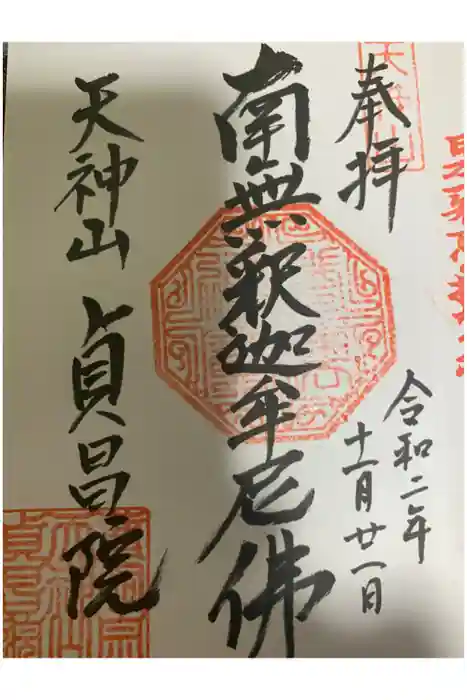 奉拝
令和二年
十一月廿一日
南無釈迦牟尼佛
天神山 貞昌院
天神山